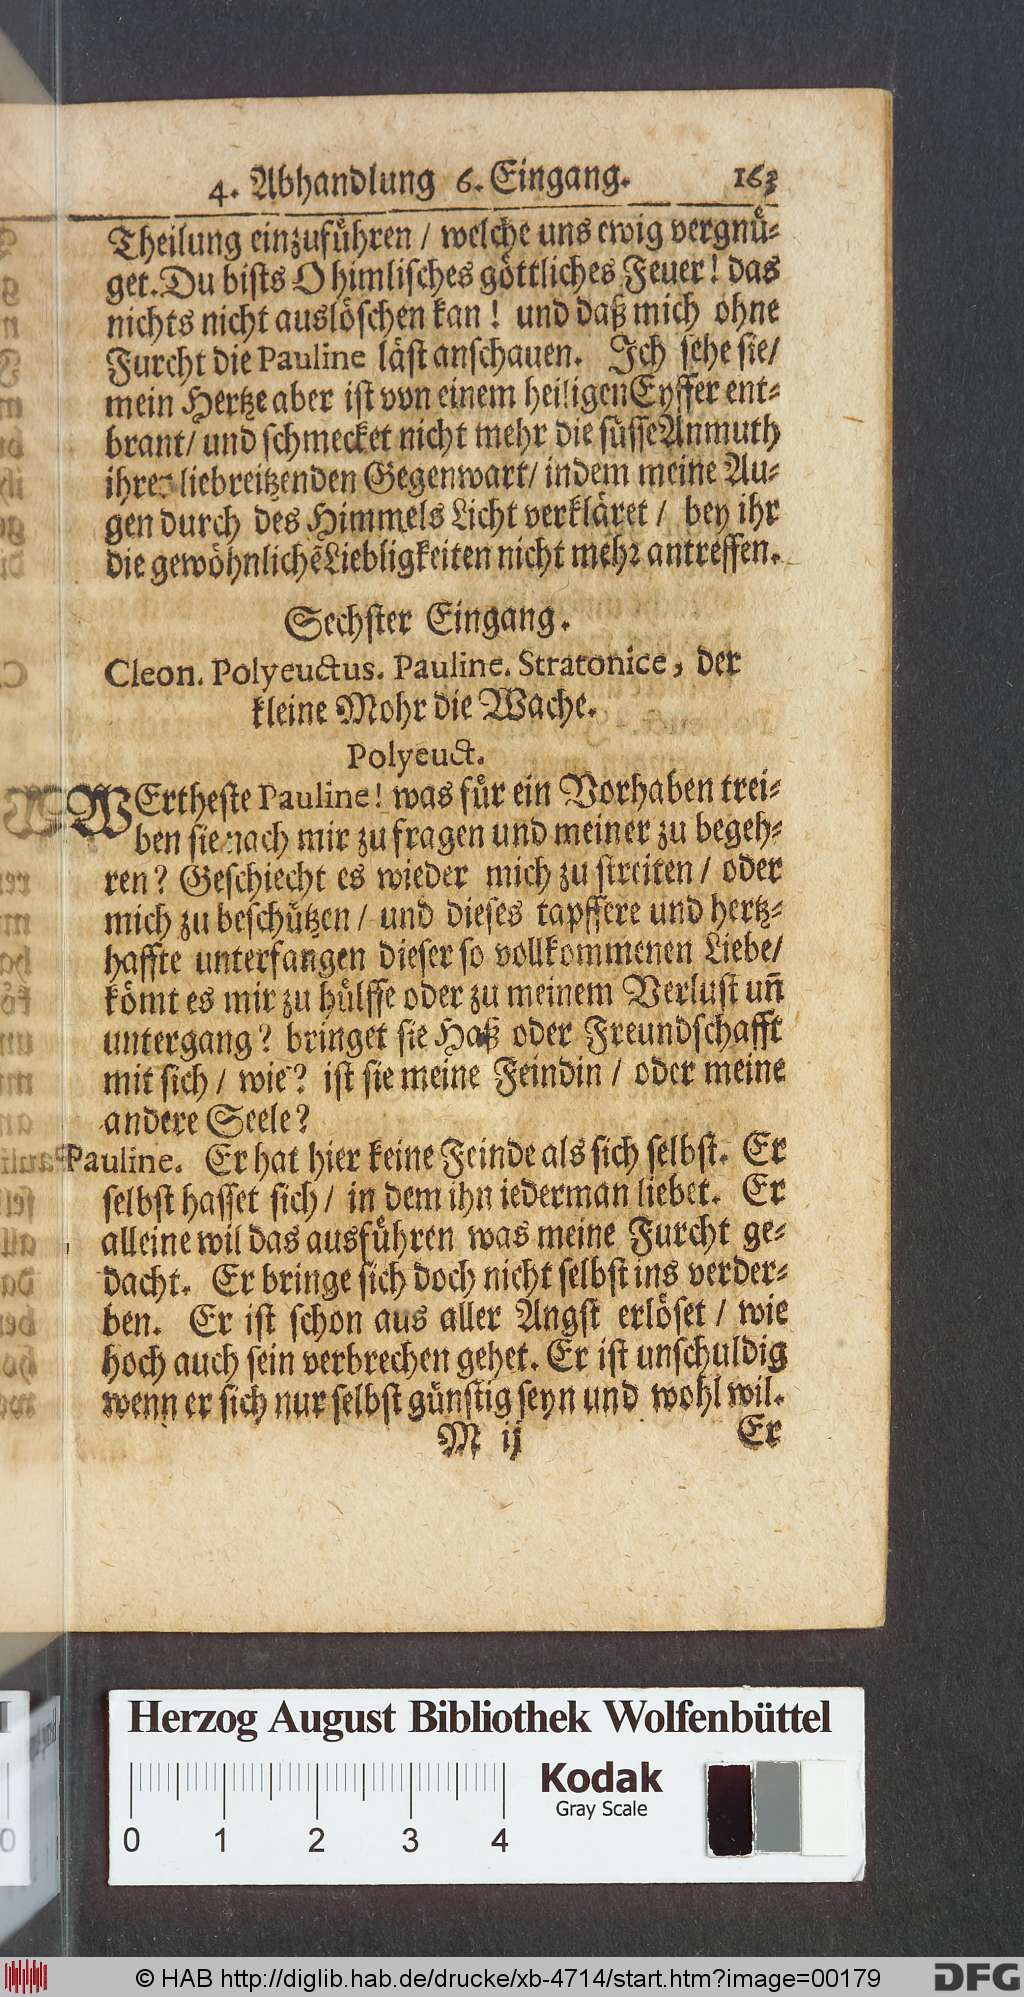 4. Abhandlung 6. Eingang. 163
Theilung einzufuͤhren / welche uns ewig vergnuͤ-
get. Du bists O himlisches göttliches Feuer! das
nichts nicht auslöschen kan! und daß mich ohne
Furcht die Pauline läst anschauen. Ich sehe sie/
mein Hertze aber ist von einem heiligen Eyffer ent-
brant/ und schmecket nicht mehr die süsse Anmuth
ihrer liebreitzenden Gegenwart/ indem meine Au-
gen durch des Himmels Licht verkläret / bey ihr
die gewöhnlichē Liebligkeiten nicht mehr antreffen.
Sechster Eingang.
Cleon. Polyeuctus. Pauline. Stratonice, der
kleine Mohr die Wache.
Polyeuct.
WErtheste Pauline! was fuͤr ein Vorhaben trei-
ben sie nach mir zu fragen und meiner zu begeh-
ren? Geschiecht es wieder mich zu streiten / oder
mich zu beschützen / und dieses tapffere und hertz-
haffte unterfangen dieser so vollkommenen Liebe/
kömt es mir zu hülffe oder zu meinem Verlust uñ
untergang? bringet sie Haß oder Freundschafft
mit sich / wie? ist sie meine Feindin / oder meine
andere Seele?
Pauline. Er hat hier keine Feinde als sich selbst. Er
selbst hasset sich / in dem ihn iederman liebet. Er
alleine wil das ausfuͤhren was meine Furcht ge-
dacht. Er bringe sich doch nicht selbst ins verder-
ben. Er ist schon aus aller Angst erlöset / wie
hoch auch sein verbrechen gehet. Er ist unschuldig
wenn er sich nur selbst guͤnstig seyn und wohl wil.
M ij Er
Herzog August Bibliothek Wolfenbüttel
Kodak
Gray Scale
0 1 2 3 4
© HAB http://diglib.hab.de/drucke/xb-4714/start.htm?image=00179 DFG